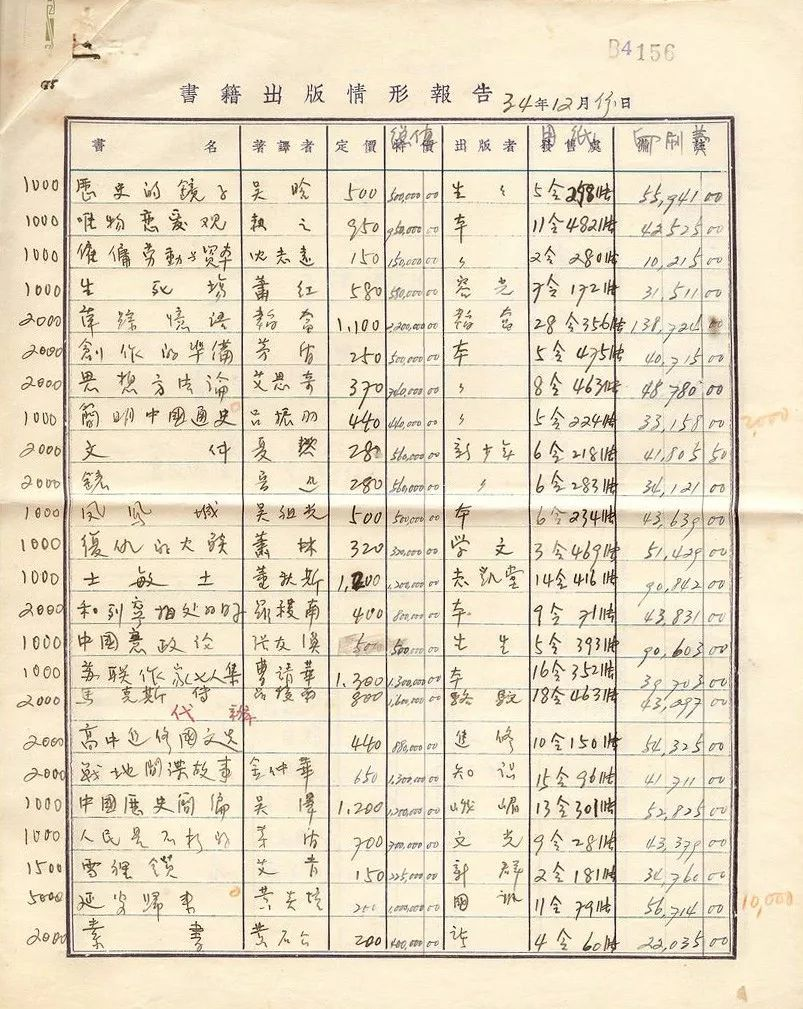 B4156
書籍出版情形報告 34年12月 日
書名 著譯者 定價 總價 出版者 用紙 印刷費
1000 歷史的鏡子 吳晗 500 500,000 00 生〃 5令298張 55,941 00
1000 唯物恋爱观 執之 950 950,000 00 本 11令482張 42,525 00
1000 雇傭勞動与資本 沈志遠 150 150,000 00 〃 2令280張 10,215 00
1000 生死場 蕭红 580 580,000 00 容光 7令172張 31,511 00
2000 萍踪憶語 韜奮 1,100 2,200,000 00 韜奮 28令356張 138,724 00
2000 創作的準備 茅盾 250 500,000 00 本 5令475張 40,715 00
2000 思想方法論 艾思奇 370 740,000 00 〃 8令463張 48,780 00
1000 簡明中國通史 吕振羽 440 440,000 00 〃 5令224張 33,158 00 2,000
2000 文件 夏 280 560,000 00 新少年 6令218張 41,805 50
2000 鏡 280 560,000 00 〃 6令283張 34,121 00
1000 凤凰城 吴祖光 500 500,000 00 本 6令234張 43,639 00
1000 復仇的火燄 蕭林 320 320,000 00 学文 3令469張 51,429 00
1000 士敏土 董秋斯 1,200 1,200,000 00 志凱堂 14令416張 90,842 00
2000 和列寧相处的时 羅稷南 400 800,000 00 本 9令71張 43,831 00
1000 中國憲政论 张友漁 500 500,000 00 生生 5令393張 90,603 00
1000 苏联作家七人集 曹靖華 1,300 1,300,000 00 本 16令352張 39,703 00
2000 馬克斯傳 羅稷南 800 1,600,000 00 駱駝 18令463張 43,297 00
代辦
2000 高中進修國文选 440 880,000 00 進修 10令150張 54,325 00
2000 戰地間諜故事 金仲華 650 1,300,000 00 知識 15令96張 41,711 00
1000 中國歷史簡編 吴澤 1,200 1,200,000 00 峨嵋 13令301張 52,825 00
1000 人民是不朽的 茅盾 700 700,000 00 文光 9令281張 43,379 00
1500 雪裡鑽 艾青 150 225,000 00 新群 2令181張 34,760 00
5000 延安歸來 黄炎培 200 1,000,000 00 國訊 11令79張 56,714 00 10,000
2000 素書 黄石公 200 400,000 00 訊 4令60張 22,035 00